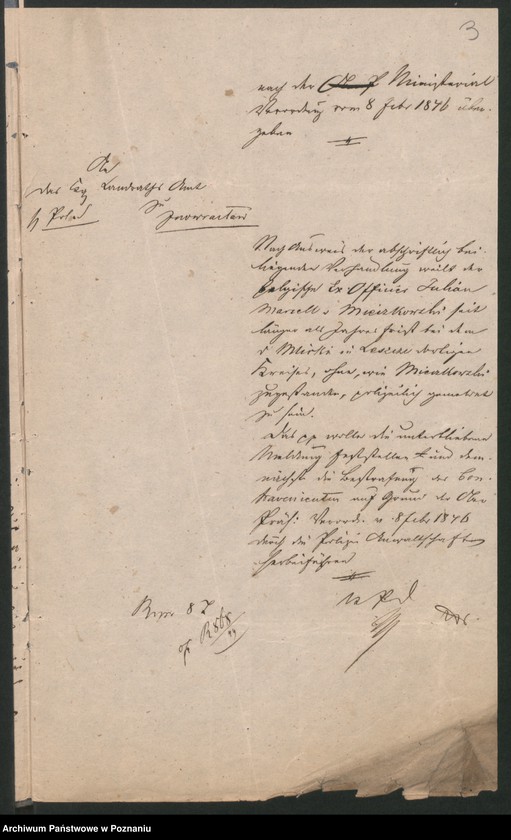 3
nach der Ministerial
Verordng vom 8 Febr 1846 über-
geben
An
das Kg Landraths Amt
zu
Inowraclaw
Nach Ausweis der abschriftlich bei-
liegenden Verhandlung weilt der
Belgische Ex Officier Julian
Marcell v Mieczkowski seit
länger als Jahres frist bei dem
v Mlicki in dortigen
Kreises, ohne, wie Mieczkowski
zugestanden, polizeilich gemeldet
zu sein.
Das pp wolle die unterbliebene
Meldung feststellen und dem-
nächst die Bestrafung des Con-
travenienten auf Grund der Ober
Präs: Verordn v 8 Febr 1846
durch die Polizei Anwaltschaft
herbeiführen
K P D
8
Archiwum Państwowe w Poznaniu